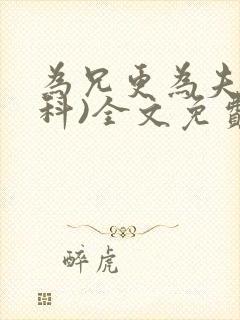 為兄更為夫
科)全文免費
醉虎